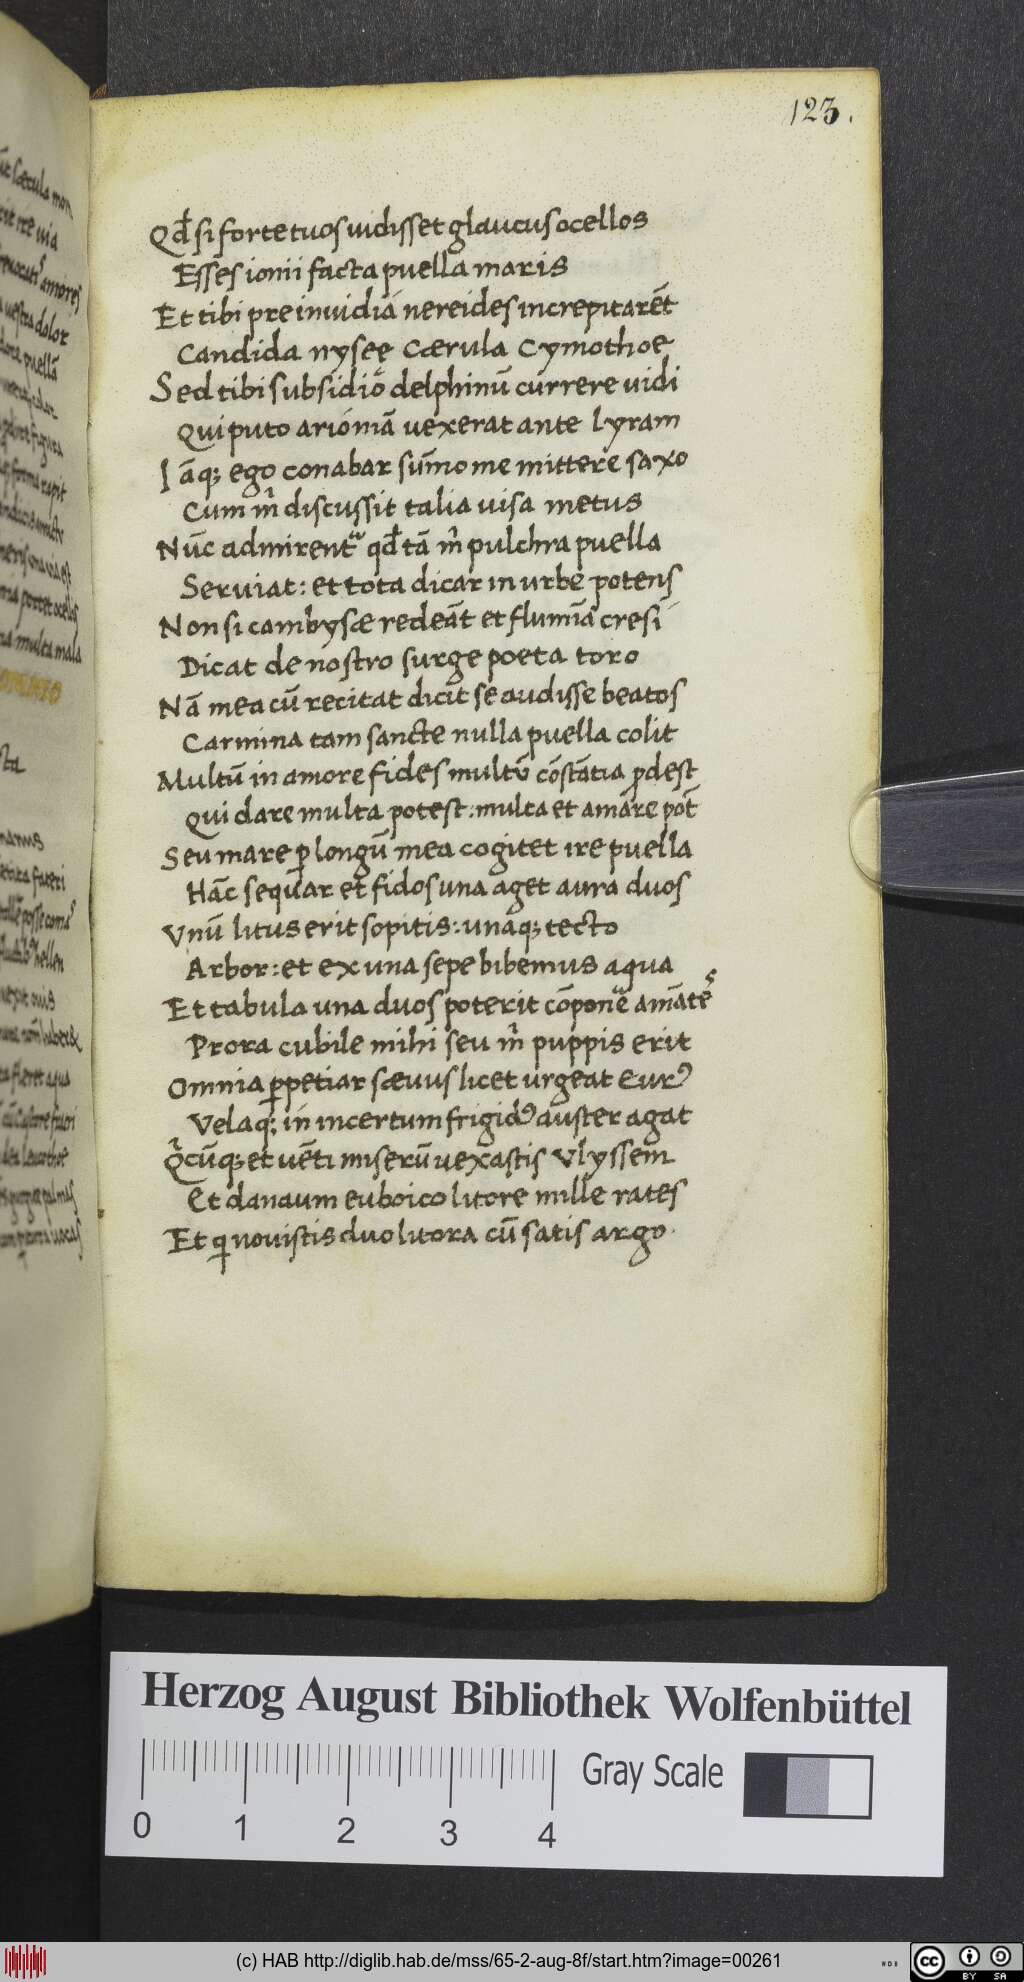 123.
Qđ si forte tuos uidisset glaucus ocellos
Esses ionii facta puella maris
Et tibi pre inuidia nereides increpitarēt
Candida nyseę Cærula Cymothoe
Sed tibi subsidio delphinū currere uidi
Qui puto arioniā uexerat ante lyram
Iāq; ego conabar sūmo me mittere saxo
Cum m̊ discussit talia uisa metus
Nūc admirentᷣ qđ tā m̊ pulchra puella
Seruiat: et tota dicar in urbe potens
Non si cambysæ redeāt et flumīa cresi
Dicat de nostro surge poeta toro
Nā mea cū recitat dicit se audisse beatos
Carmina tam sancte nulla puella colit
Multū in amore fides multū cōstātia ꝓdest
Qui dare multa potest: multa et amare pōt
Seu mare ꝑ longū mea cogitet ire puella
Hāc sequar et fidos una aget aura duos
Vnū litus erit sopitis: unaq; tecto
Arbor: et ex una sepe bibemus aqua
Et tabula una duos poterit cōponē amātes
Prora cubile mihi seu m̊ puppis erit
Omnia ꝑpetiar sæuus licet urgeat Eurꝰ
Velaq; in incertum frigidꝰ auster agat
Qͥcūq; et uēti miserū uexastis Vlyssem
Et danaum euboico litore mille rates
Et ꝗ nouistis duo litora cū satis argo.
Herzog August Bibliothek Wolfenbüttel
0 1 2 3 4
Gray Scale
(c) HAB http://diglib.hab.de/mss/65-2-aug-8f/start.htm?image=00261
cc BY SA